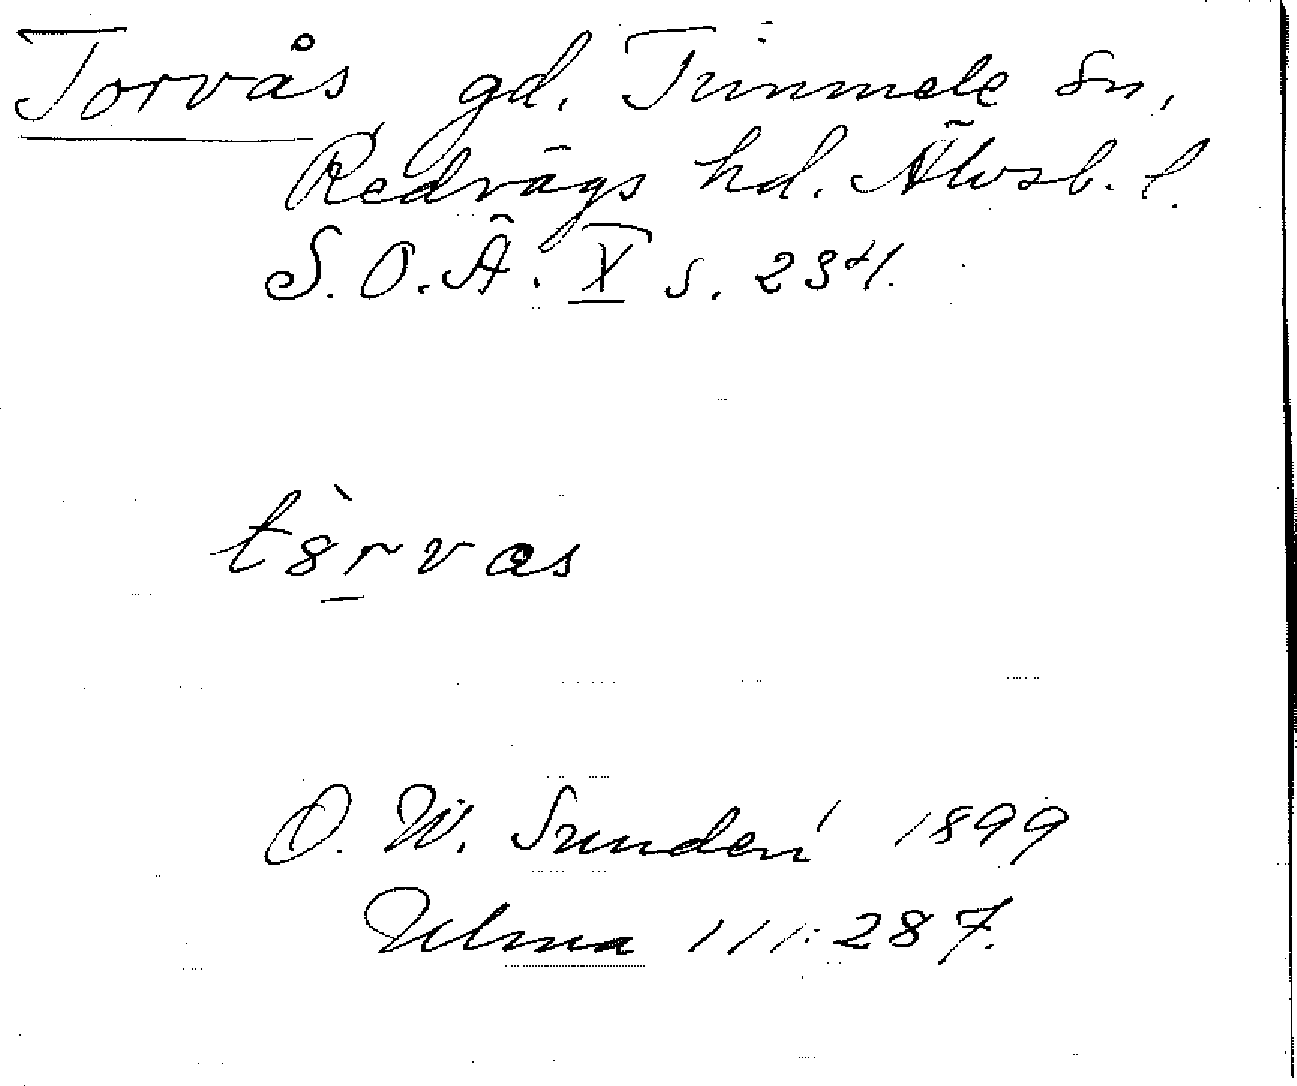 Torvås, gd. Timmele sn,
Redvägs hd. Älvsb. l.
S.O.Ä. X s. 234.
tȣ̀rvas
O. W. Sundén 1899
Ulma 111:287.